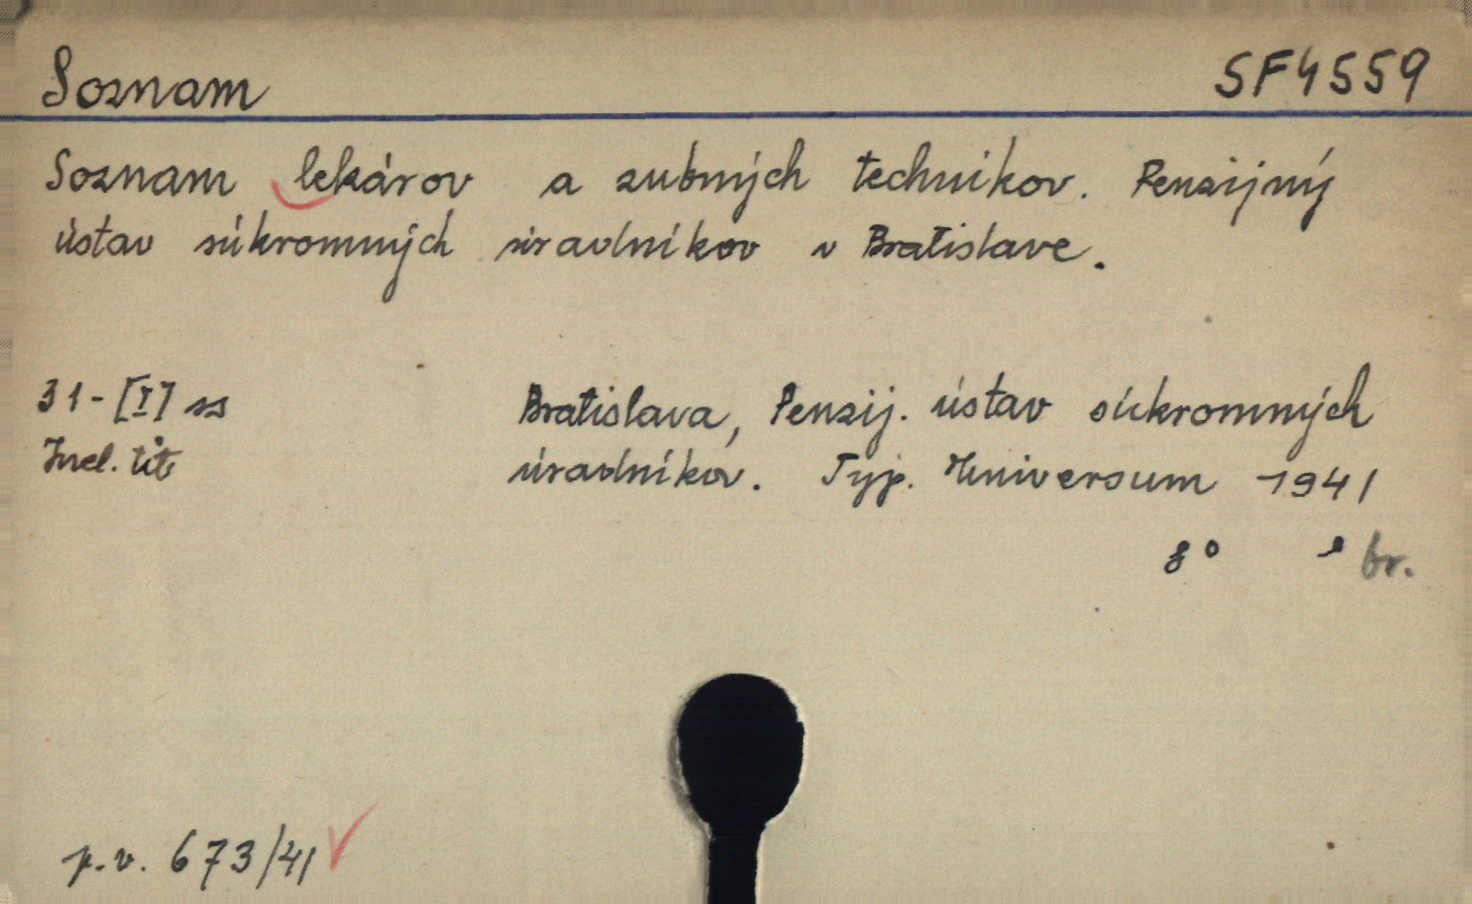 Soznam SF4559
Soznam lekárov a zubných technikov. Penzijný
ústav súkromných úradníkov v Bratislave.
31-[I] ss Bratislava, Penzij. ústav súkromných
Incl. tit úradníkov. Typ. Universum 1941
8° br.
p.v. 673/41